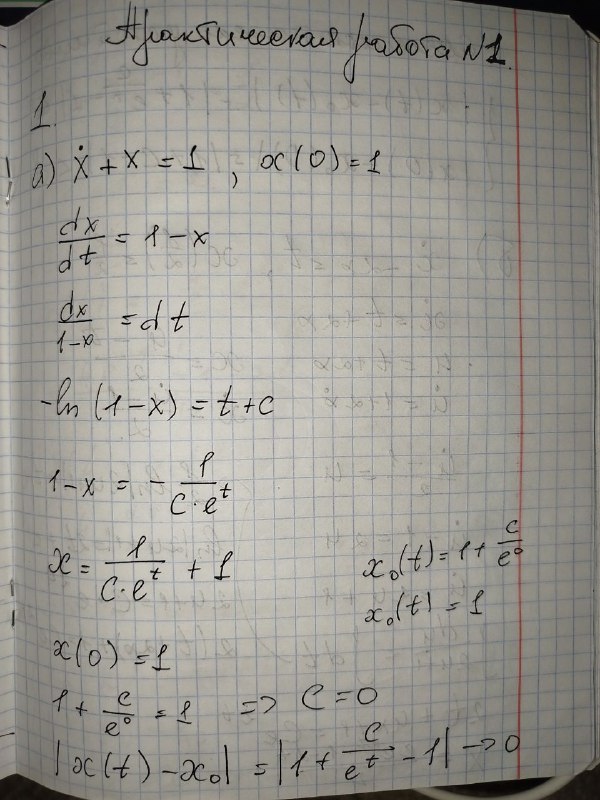 Практическая работа №1.
1.
а) ẋ + x = 1, x(0) = 1
dx/dt = 1 - x
dx/(1-x) = dt
-ln(1-x) = t + c
1 - x = - 1/(c·e^t)
x = 1/(c·e^t) + 1
x₀(t) = 1 + c/e⁰
x₀(t) = 1
x(0) = 1
1 + c/e⁰ = 1 => c = 0
|x(t) - x₀| = |1 + c/e^t - 1| → 0